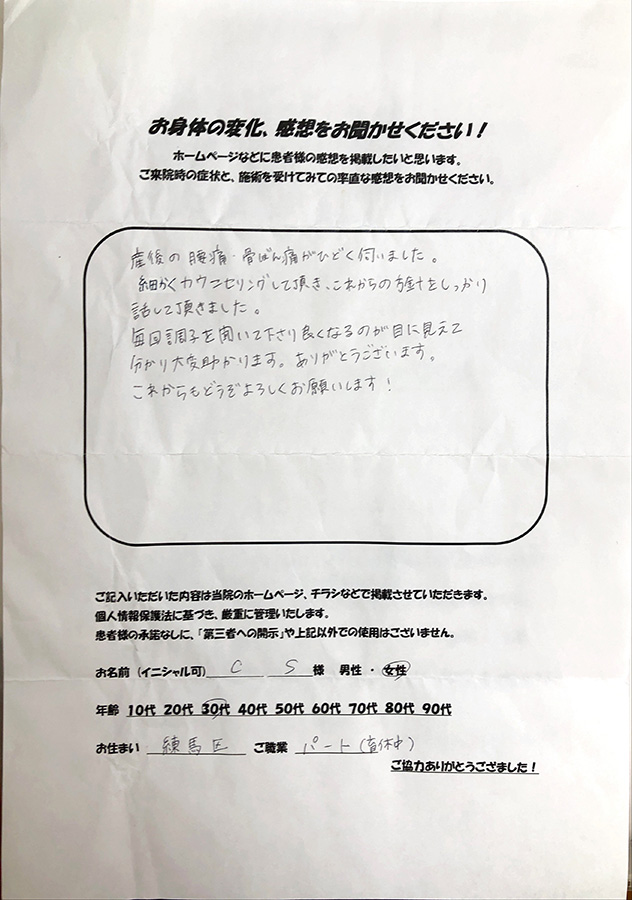 お身体の変化、感想をお聞かせください！
ホームページなどに患者様の感想を掲載したいと思います。
ご来院時の症状と、施術を受けてみての率直な感想をお聞かせください。
産後の腰痛・骨ばん痛がひどく伺いました。
細かくカウンセリングして頂き、これからの方針をしっかり
話して頂きました。
毎回調子を聞いて下さり良くなるのが目に見えて
分かり大変助かります。ありがとうございます。
これからもどうぞよろしくお願いします！
ご記入いただいた内容は当院のホームページ、チラシなどで掲載させていただきます。
個人情報保護法に基づき、厳重に管理いたします。
患者様の承諾なしに、「第三者への開示」や上記以外での使用はございません。
お名前（イニシャル可） C S 様 男性・女性
年齢 10代 20代 30代 40代 50代 60代 70代 80代 90代
お住まい 練馬区 ご職業 パート（育休中）
ご協力ありがとうござました！